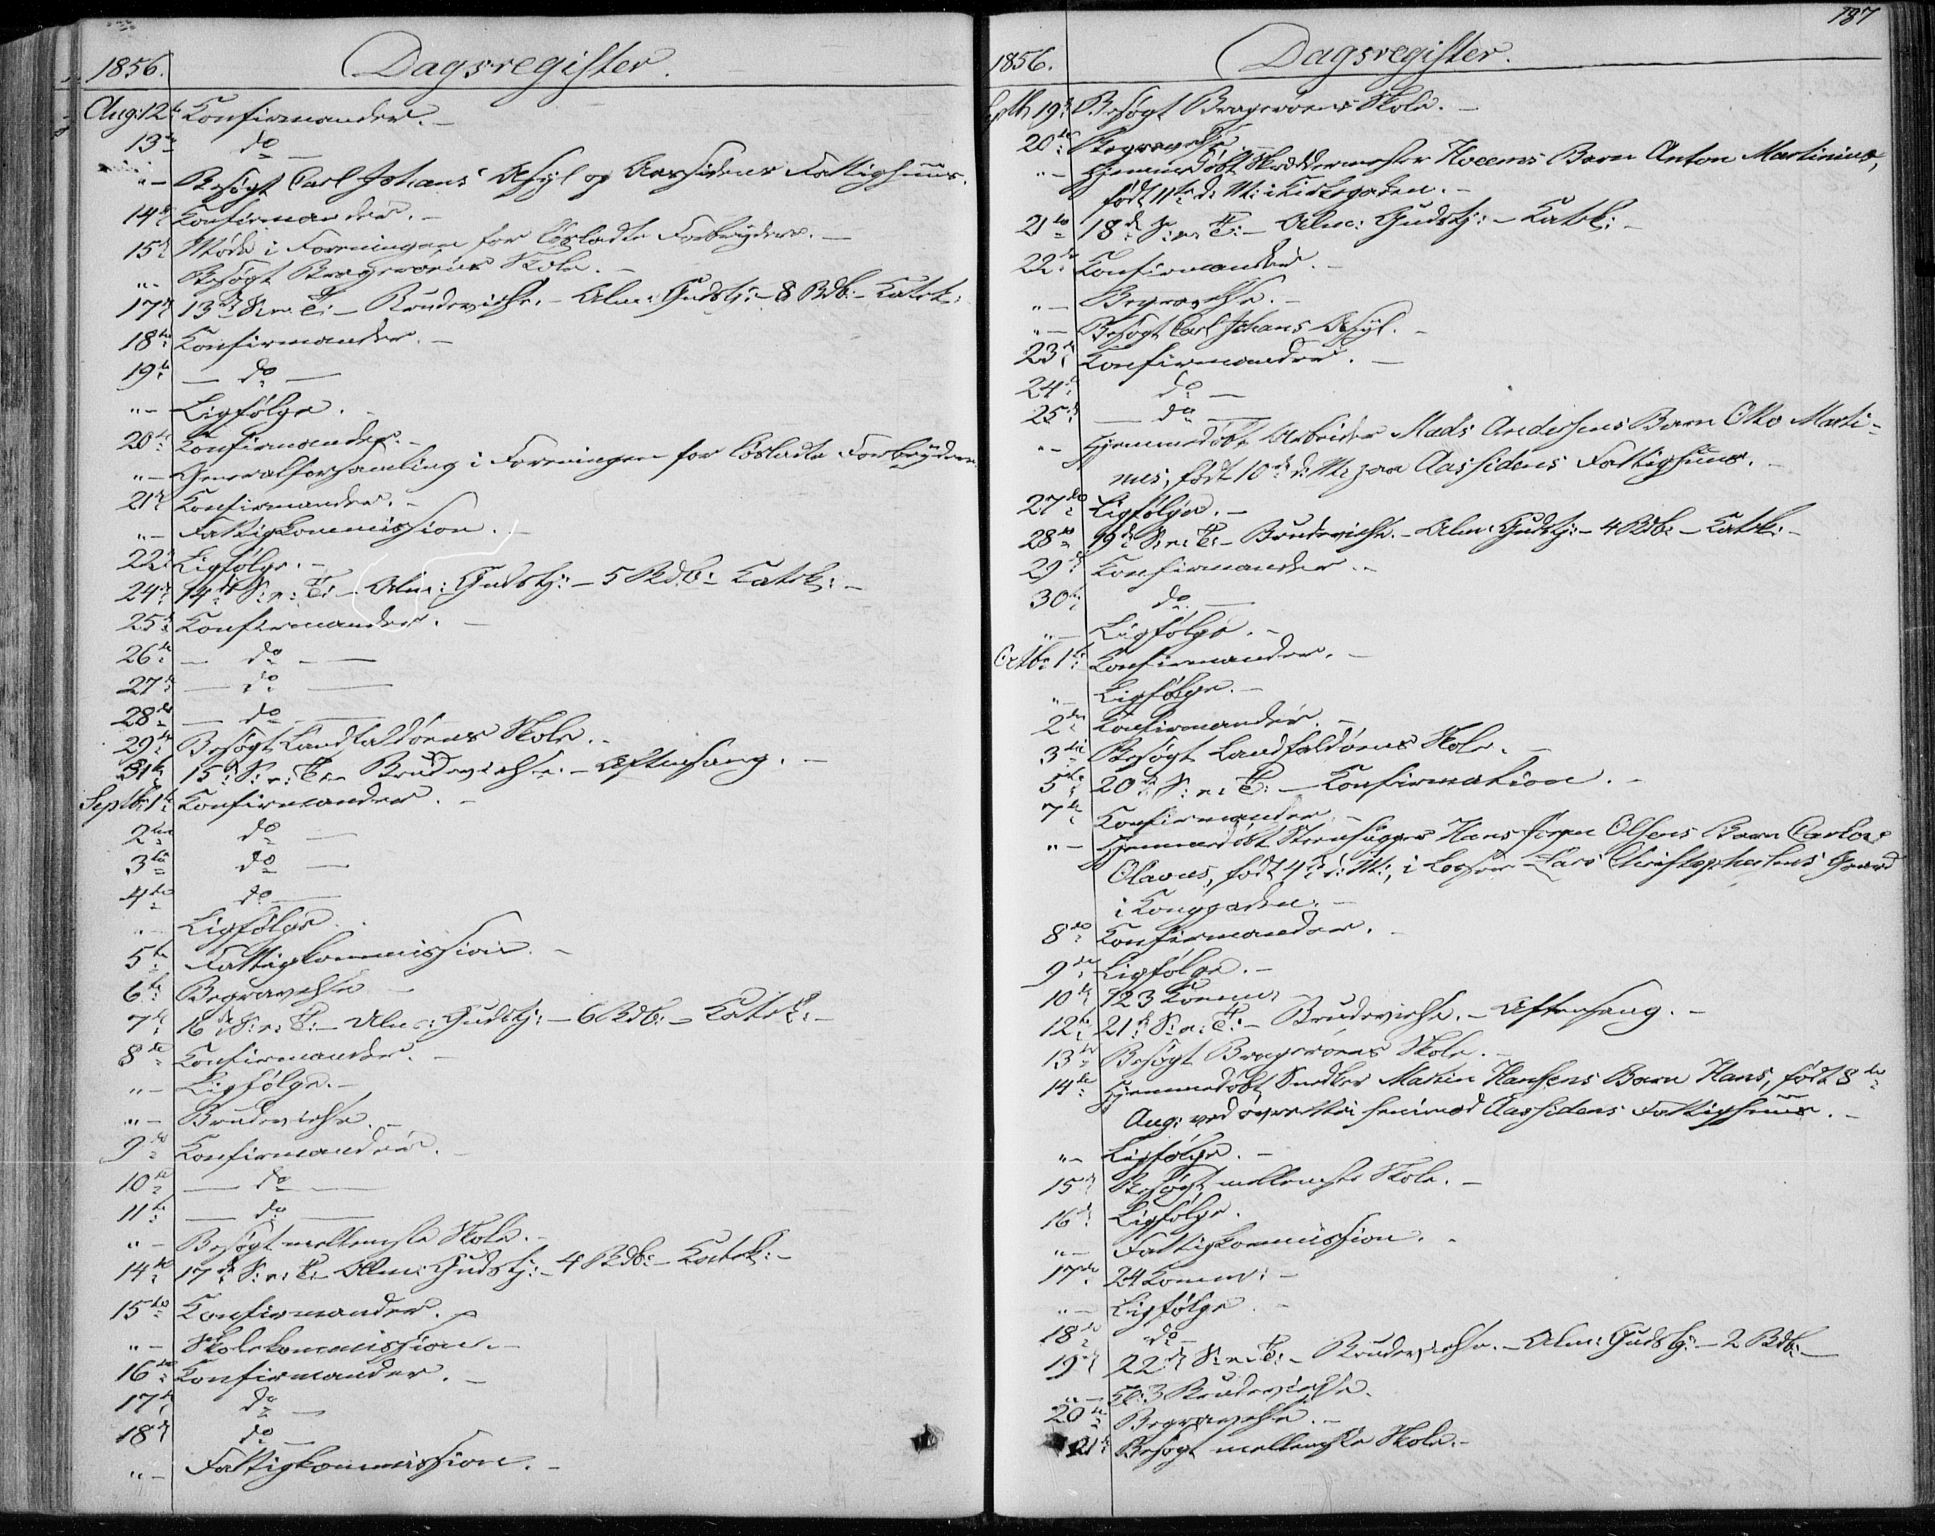 1856. Dagsregister.
Aug: 12te Konfirmander. –
13de do –
" – Besøgt Carl Johans Asyl og Aassidens Fattighuus.
14de Konfirmander. –
15de Møde i Foreningen for løsladte Forbrydere. –
" – Besøgt Bragerøens Skole. –
17de 13de S: n: T: – Brudevielse. – Alm: Gudstj: – 8 Bdb: – Katek:
18de Konfirmander. –
19de – do –
" – Ligfølge. –
20de Konfirmander. –
" – Generalforsamling i Foreningen for løsladte Forbrydere
21de Konfirmander. –
" – Fattigkommission. –
22de Ligfølge. –
24de 14de S: n: T: – Alm: Gudstj: – 5 Bdb: – Katek: –
25de Konfirmander. –
26de – do –
27de – do –
28de – do –
29de Besøgt Landfaldøens Skole. –
31te 15de S: n: T: – Brudevielse. – Aftensang. –
Septb: 1te Konfirmander. –
2den do –
3die do –
4de do –
" – Ligfølge.
5te Fattigkommission. –
6te Begravelse –
7de 16de S: n: T: – Alm: Gudstj: – 6 Bdb: – Katek: –
8de Konfirmander. –
" – Ligfølge. –
" – Brudevielse. –
9de Konfirmander. –
10de – do –
11te – do –
" – Besøgt mellemste Skole. –
14de 17de S: n: T: – Alm: Gudstj: – 4 Bdb: – Katek: –
15de Konfirmander. –
" – Skolekommission. –
16de Konfirmander. –
17de do –
18de do –
" – Fattigkommission. –
187
1856. Dagsregister.
Septb 19de Besøgt Bragerøens Skole. –
20de Begravelse. –
" – Hjemmedøbt Skræddermester Hoeems Barn Anton Martinius,
født 11te d: M: i Kirkegaden. –
21de 18de S: n: T: – Alm: Gudstj: – Katek: –
22de Konfirmander. –
" – Begravelse. –
" – Besøgt Carl Johans Asyl. –
23de Konfirmander. –
24de do –
25de – do –
" – Hjemmedøbt Arbeider Mads Andersens Barn Otto Marti-
nus, født 10de d: M: paa Aassidens Fattighuus. –
27de Ligfølge. –
28de 19de S: n: T: – Brudevielse. – Alm: Gudstj: – 4 Bdb: – Katek: –
29de Konfirmander. –
30te do –
" – Ligfølge. –
Octb: 1te Konfirmander. –
" – Ligfølge. –
2den Konfirmander. –
3die Besøgt Landfaldøens Skole. –
5te 20de S: n: T: – Konfirmation. –
7de Konfirmander. –
" – Hjemmedøbt Steenhugger Hans Jørgen Olsens Barn
Olavus, født 4de d: M:, i Lars Christophersens Gaard
i Konggaden. –
8de Konfirmander. –
9de Ligfølge. –
10de 123 Komm: –
12te 21de S: n: T: – Brudevielse. – Aftensang. –
13de Besøgt Bragerøens Skole. –
14de Hjemmedøbt Snedker Martin Hansens Barn Hans, født 8de
Aug: ved Aassidens Fattighuus. –
" – Ligfølge. –
15de Besøgt mellemste Skole. –
16de Ligfølge.
" – Fattigkommission. –
17de 24 Komm: –
" – Ligfølge. –
18de do –
19de 22de S: n: T: – Brudevielse. – Alm: Gudstj: – 2 Bdb: –
" – 3 Brudevielse.
20de Begravelse. –
21de Besøgt mellemste Skole. –